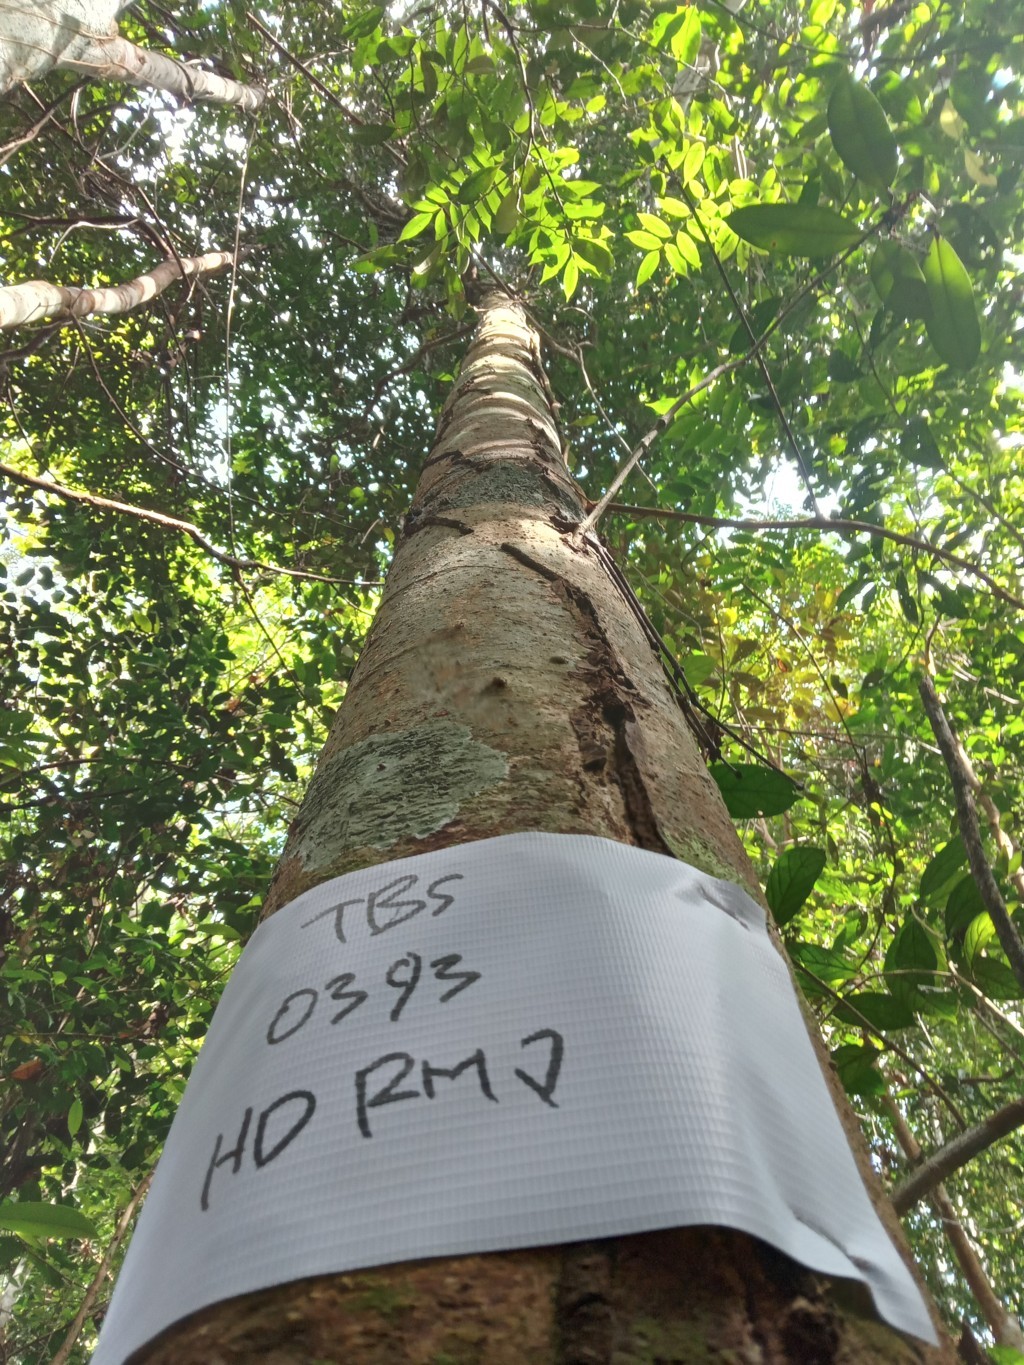 TBS
0393
HD RMJ